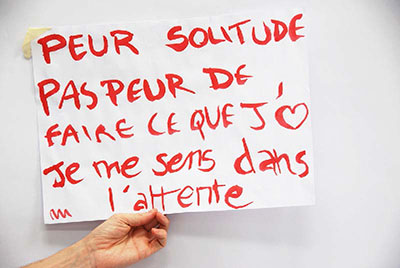 PEUR SOLITUDE
PAS PEUR DE
FAIRE CE QUE J'♡
Je me sens dans
l'attente